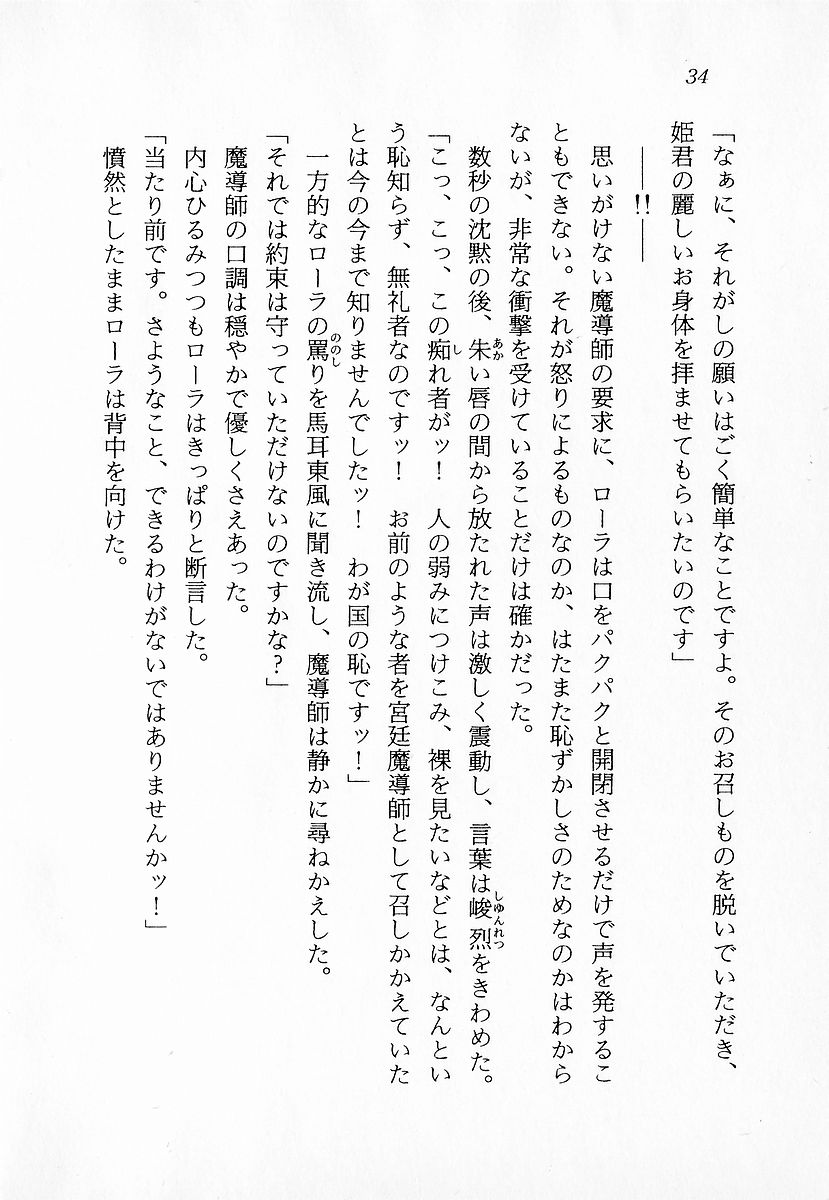 34
「なぁに、それがしの願いはごく簡単なことですよ。そのお召しものを脱いでいただき、
姫君の麗しいお身体を拝ませてもらいたいのです」
――!!――
思いがけない魔導師の要求に、ローラは口をパクパクと開閉させるだけで声を発するこ
ともできない。それが怒りによるものなのか、はたまた恥ずかしさのためなのかはわから
ないが、非常な衝撃を受けていることだけは確かだった。
数秒の沈黙の後、朱い唇の間から放たれた声は激しく震動し、言葉は峻烈をきわめた。
「こっ、こっ、この痴れ者がッ！　人の弱みにつけこみ、裸を見たいなどとは、なんとい
う恥知らず、無礼者なのですッ！　お前のような者を宮廷魔導師として召しかかえていた
とは今の今まで知りませんでしたッ！　わが国の恥ですッ！」
一方的なローラの罵りを馬耳東風に聞き流し、魔導師は静かに尋ねかえした。
「それでは約束は守っていただけないのですかな？」
魔導師の口調は穏やかで優しくさえあった。
内心ひるみつつもローラはきっぱりと断言した。
「当たり前です。さようなこと、できるわけがないではありませんかッ！」
憤然としたままローラは背中を向けた。